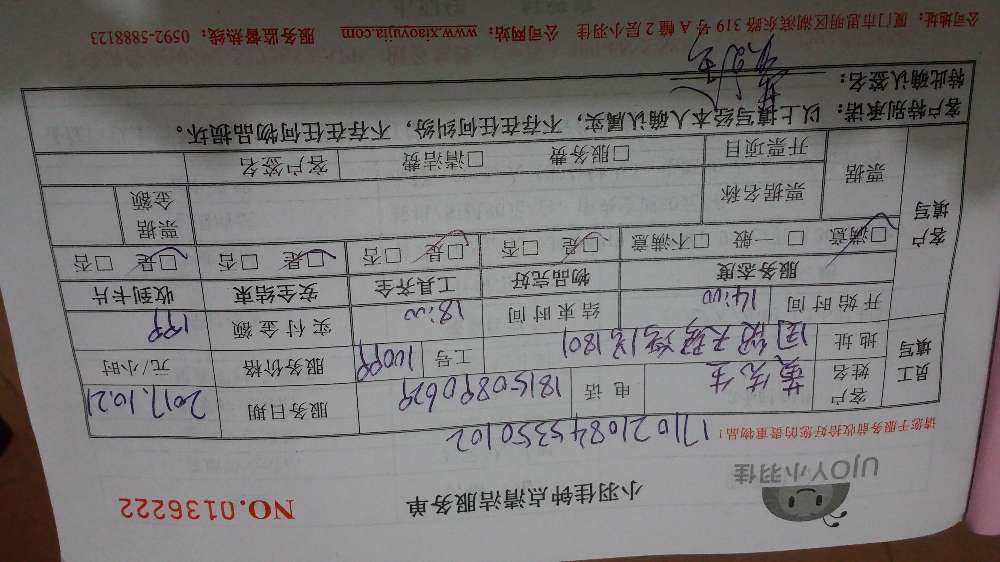 UJOY小羽佳
小羽佳钟点清洁服务单
NO.0136222
请您于服务前收拾好您的贵重物品!
1710210845350102
员工填写
客户姓名 黄先生 电话 18150890629 服务日期 2017.10.21
地址 1801 工号 10099 服务价格 元/小时
开始时间 14:00 结束时间 18:00 实付金额 199
客户填写
服务态度 物品完好 工具齐全 安全结束 收到卡片
□满意 □一般 □不满意 □是 □否 □是 □否 □是 □否 □是 □否
票据 票据名称 票据金额
开票项目 □服务费 □清洁费 客户签名
客户特别承诺:以上填写经本人确认属实,不存在任何纠纷,不存在任何物品损坏。
特此确认签名:
公司地址:厦门市思明区湖滨东路 319 号 A 幢 2 层小羽佳 公司网站:www.xiaoyujia.com 服务监督热线:0592-5888123